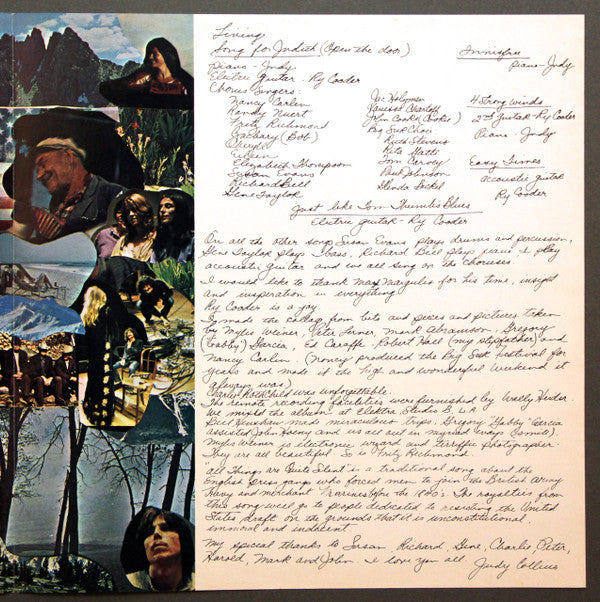 Living
Song for Judith (Open the door)
Piano - Judy
Electric guitar - Ry Cooder
Chorus Singers:
Nancy Carlen
Randy
Fritz Richmond
(Bob)
Eileen
Elizabeth Thompson
Susan Evans
Richard Bell
Gene Taylor
Jac Holzman
Vanessa
John Cooke (Cookie)
Big Sur Choir
Ruth Stevens
Rita
Tom
Paul Johnson
Innisfree
Piano - Judy
4 Strong Winds
2nd Guitar - Ry Cooder
Piano - Judy
Easy Times
acoustic guitar
Ry Cooder
Just like Tom Thumb's Blues
Electric guitar - Ry Cooder
On all the other songs Susan Evans plays drums and percussion,
Gene Taylor plays bass, Richard Bell plays piano. I play
acoustic guitar and we all sing on the choruses.
I would like to thank Max Margulis for his time, insight
and inspiration in everything
Ry Cooder is a joy
I made the collage from bits and pieces and pictures taken
by Myles Weiner, Peter Lerner, Mark Abramson, Gregory
Garcia, Ed Caraeff, Robert Hall (my stepfather) and
Nancy Carlin. (Nancy produced the Big Sur festival for
years and made it the high and wonderful weekend it
always was)
Charlie Rothchild was unforgettable.
The remote recording facilities were furnished by Wally Heider
We mixed the album at Elektra Studio B, L.A.
made miraculous trips. Gregory Garcia
assisted John Haeny and us
Myles Weiner is electronic wizard and terrific photographer.
They are all beautiful. So is Fritz Richmond.
"All Things Are Quite Silent" is a traditional song about the
English press gangs who forced men to join the British Army
Navy and merchant the 1800's. The royalties from
this song will go to people dedicated to resisting the United
States draft on the grounds that it is unconstitutional,
immoral and
My special thanks to Susan, Richard, Gene, Charlie, Peter,
Harold, Mark and John. I love you all. Judy Collins